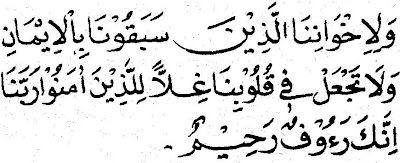 وَلِاِخْوَانِنَا الَّذِيْنَ سَبَقُوْنَا بِالْاِيْمَانِ
وَلَا تَجْعَلْ فِى قُلُوْبِنَا غِلاًّ لِلَّذِيْنَ اٰمَنُوْا رَبَّنَا
اِنَّكَ رَءُوْفٌ رَحِيْمٌ.